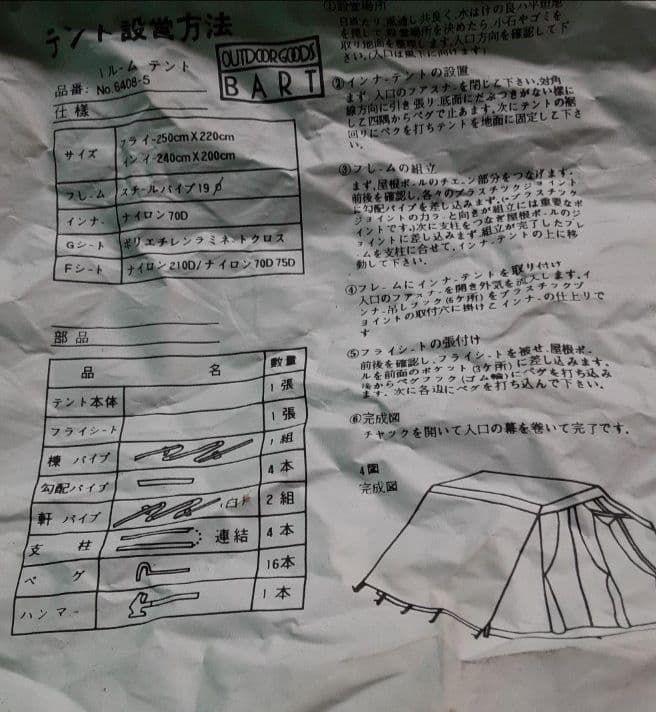 テント設営方法
OUTDOOR GOODS
BART
1ルーム テント
品番: No.6408-5
仕様
サイズ フライ-250cm X 220cm
インナー240cm X 200cm
フレーム スチールパイプ 19φ
インナー ナイロン70D
Gシート ポリエチレンラミネートクロス
Fシート ナイロン210D/ナイロン70D 75D
部品
品 名 数量
テント本体 1 張
フライシート 1 張
棟 パイプ 1 組
勾配パイプ 4 本
軒 パイプ 2 組
支 柱 連結 4 本
ペ グ 16本
ハンマー 1 本
①設営場所
日当たり、風通し共良く、水はけの良い平坦地
を探して、設営場所を決めたら、小石やゴミを
取り地面を整理します。入口方向を確認して下
さい。(入口は風下に向けます)
②インナーテントの設置
まず、入口のファスナーを閉じて下さい。対角
線方向に引き張り、底面にたるみつきがない様に
して四隅からペグで止めます。次にテントの裾
回りにペグを打ちテントを地面に固定して下さ
い。
③フレームの組立
まず、屋根ポールのチェーン部分をつなげます。
前後を確認し、各々のプラスチックジョイント
に勾配パイプを差し込みます。(プラスチック
ジョイントの力ラーと向きが組立には重要なポ
イントです。)次に支柱をつなぎ屋根ポールのジ
ョイントに差し込みます。組立が完了したフレ
ームを支柱に合せて、インナーテントの上に移
動して下さい。
④フレームにインナーテントを取り付け
入口のファスナーを開き外気を流入します。イ
ンナー吊しフック(6ケ所)をプラスチックジ
ョイントの取付穴に掛けてインナーの仕上りで
す
⑤フライシートの張付け
前後を確認し、フライシートを被せ、屋根ポー
ルを前面のポケット(3ケ所)に差し込みます。
後からペグフック(ゴム輪)にペグを打ち込み
ます。次に各辺にペグを打ち込んで下さい。
⑥完成図
チャックを開いて入口の幕を巻いて完了です。
4図
完成図